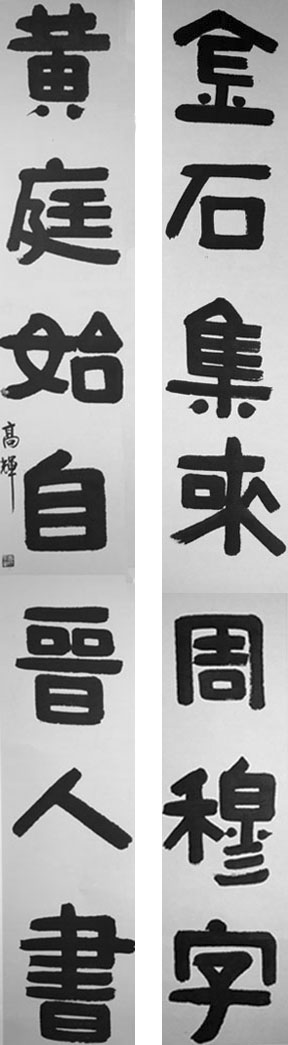 金石集來周穆字
黃庭始自晉人書
高輝